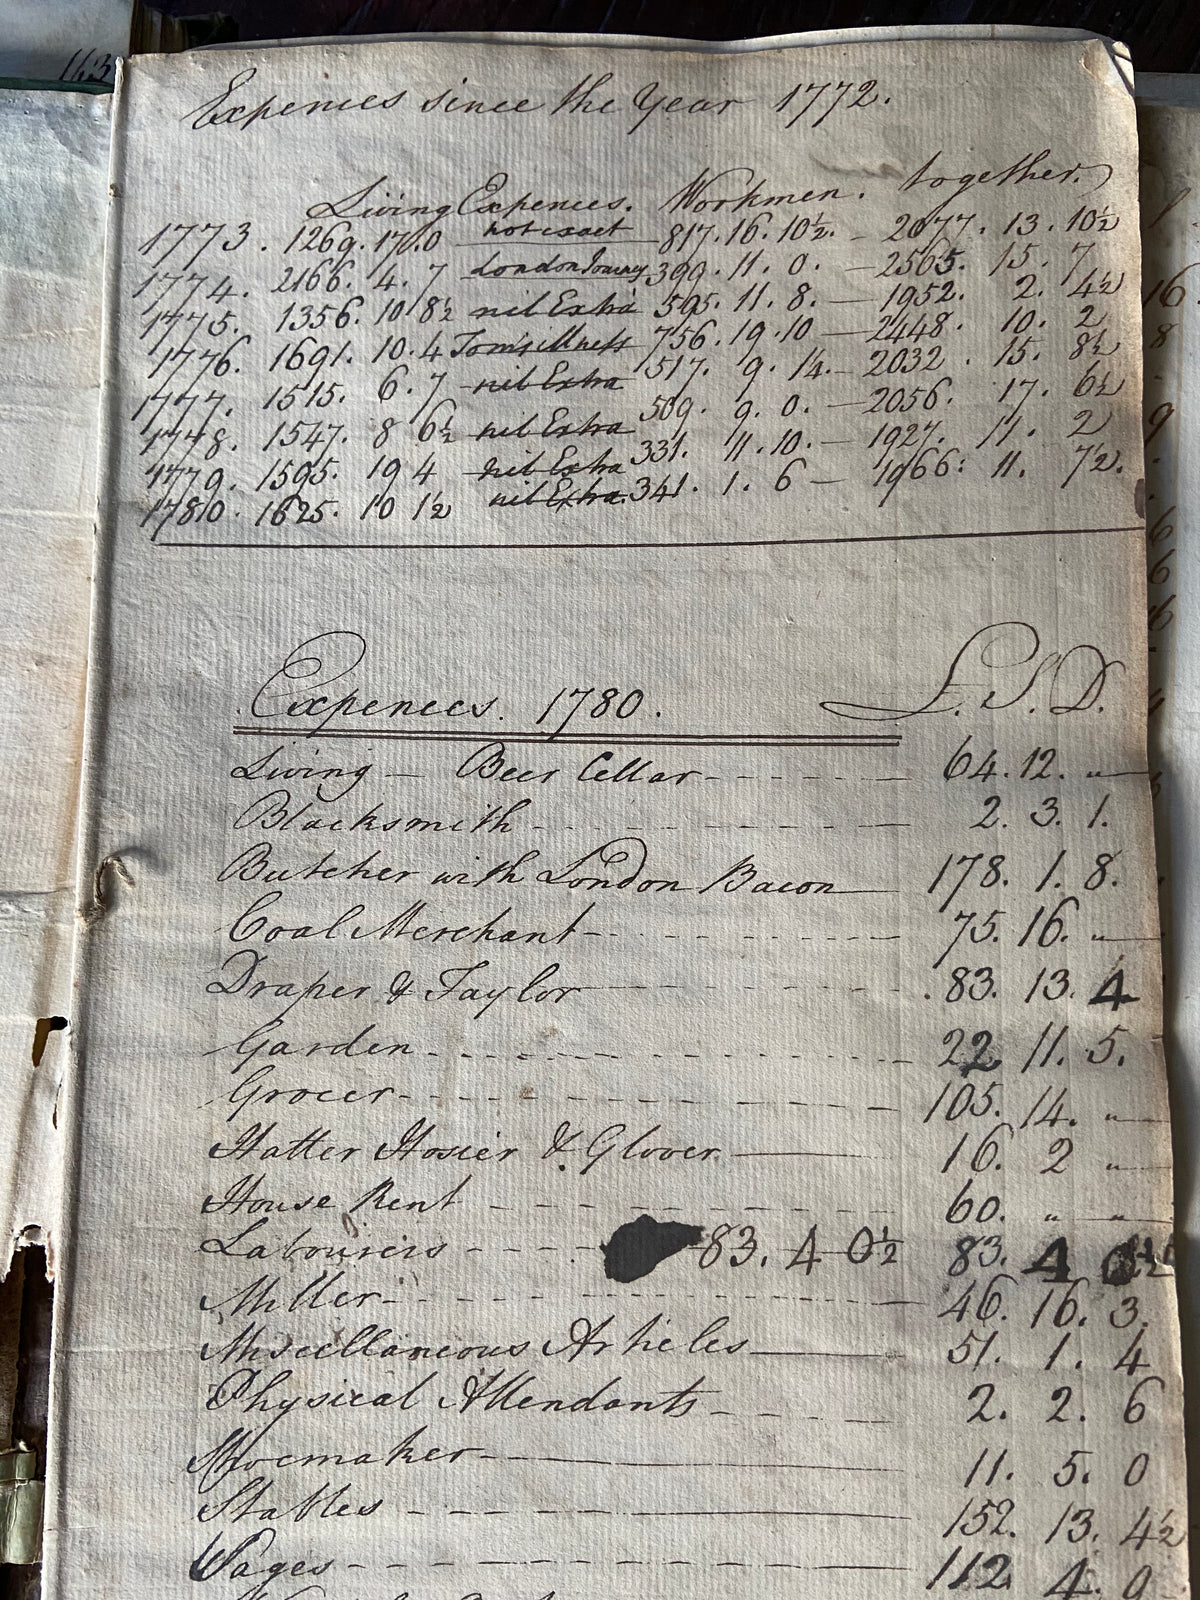 Expences since the Year 1772.
Living Expences. Workmen. together.
1773. 1269. 17. 0 not exact 817. 16. 10½. — 2077. 13. 10½
1774. 2166. 4. 7 London Journy 399. 11. 0. — 2565. 15. 7
1775. 1356. 10 8½ nil Extra 595. 11. 8. — 1952. 2. 4½
1776. 1691. 10. 4 Tom's illness 756. 19. 10 — 2448. 10. 2
1777. 1515. 6. 7 nil Extra 517. 9. 1¼. — 2032. 15. 8½
1778. 1547. 8 6½ nil Extra 509. 9. 0. — 2056. 17. 6½
1779. 1595. 19 4 nil Extra 331. 11. 10. — 1927. 11. 2
1780. 1625. 10 1½ nil Extra. 341. 1. 6 — 1966: 11. 7½.
Expences. 1780. £. S. D.
Living — Beer Cellar 64. 12. "
Blacksmith 2. 3. 1.
Butcher with London Bacon 178. 1. 8.
Coal Merchant 75. 16. "
Draper & Taylor 83. 13. 4
Garden 22 11. 5.
Grocer 105. 14. "
Hatter Hosier & Glover 16. 2 "
House Rent 60. " "
Labourers 83. 4 0½ 83. 4 0½
Miller 46. 16. 3.
Miscellaneous Articles 51. 1. 4
Physical Attendants 2. 2. 6
Shoemaker 11. 5. 0
Stables 152. 13. 4½
Wages 112. 4. 0